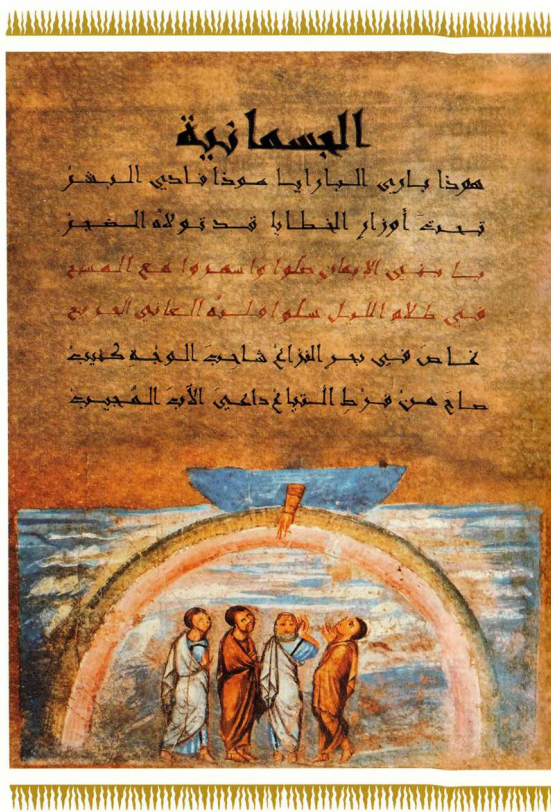 الجسمانية
هوذا باري البارايا هوذا فادي البشرْ
تحتَ أوزارِ الخطايا قد تولاَّه الضجرْ
يا بني الإيمانِ صلوا واسهروا مع المسيح
في ظلام الليل سلوا قلبَهُ العاني الجريح
غاصَ في بحر النزاعْ شاحبَ الوجهِ كئيبْ
صاحَ من فرْطِ التياعْ داعيَ الآبَ المُجيبْ